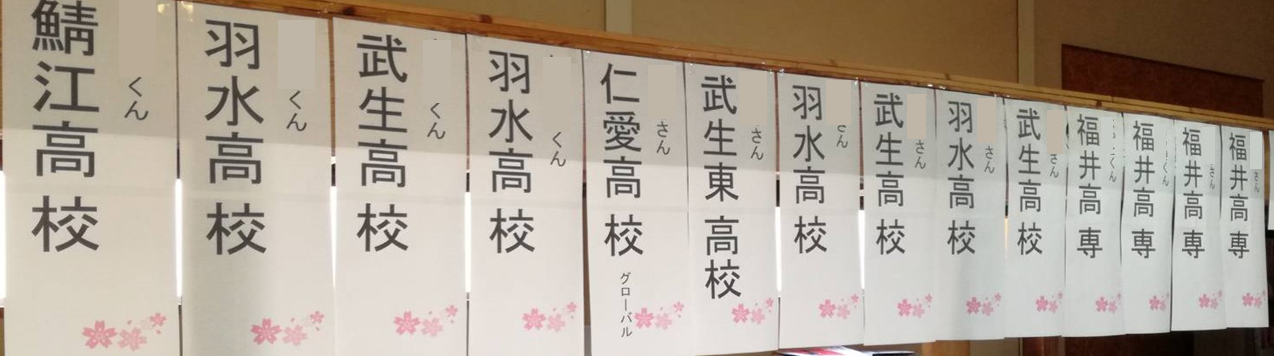 鯖江高校
くん
羽水高校
くん
武生高校
くん
羽水高校
くん
仁愛高校
グローバル
さん
武生東高校
さん
羽水高校
さん
武生高校
さん
羽水高校
さん
武生高校
さん
福井高専
くん
福井高専
くん
福井高専
さん
福井高専
さん